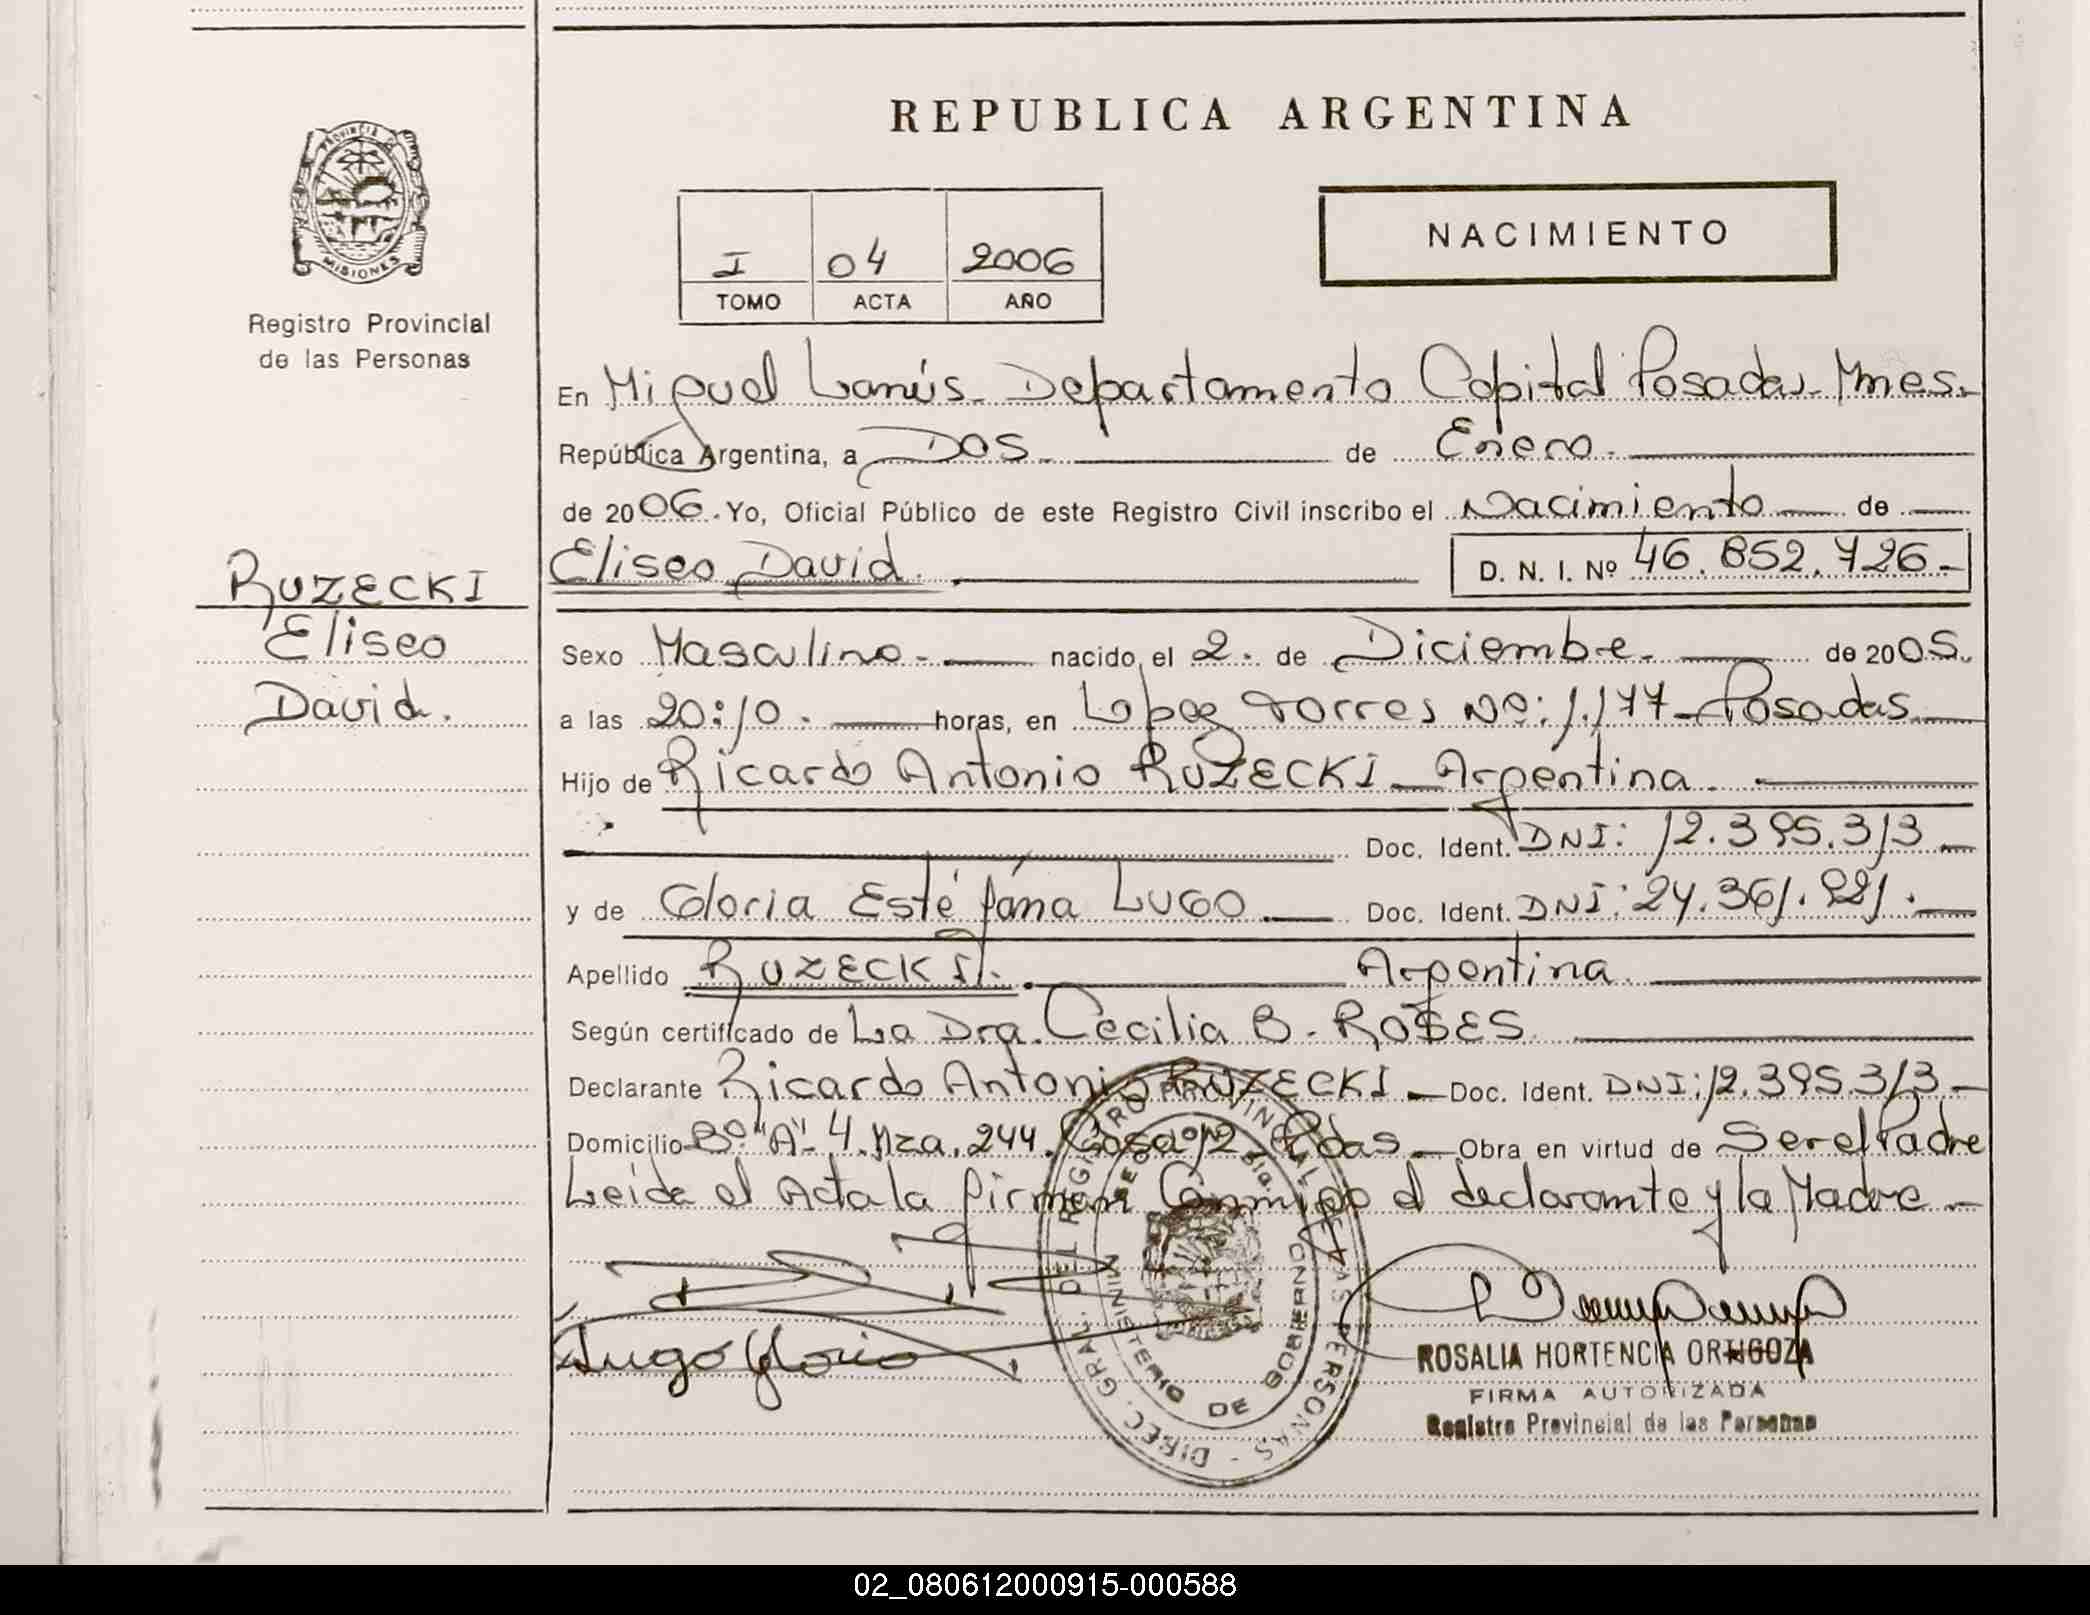 PROVINCIA DE
MISIONES
Registro Provincial
de las Personas
RUZECKI
Eliseo
David.
REPUBLICA ARGENTINA
I 04 2006
TOMO ACTA AÑO
NACIMIENTO
En Miguel Lanús - Departamento Capital Posadas - Mnes.
República Argentina, a Dos. de Enero.
de 2006. Yo, Oficial Público de este Registro Civil inscribo el Nacimiento de
Eliseo David. D. N. I. Nº 46.852.726.-
Sexo Masculino.- nacido el 2. de Diciembre. de 2005.
a las 20:10. horas, en Lopez Torres Nº: 1.177 - Posadas
Hijo de Ricardo Antonio RUZECKI - Argentina.
Doc. Ident. DNI: 12.395.313 -
y de Gloria Estéfana LUGO Doc. Ident. DNI: 24.361.921.
Apellido RUZECKI. Argentina.
Según certificado de La Dra. Cecilia B. ROSES
Declarante Ricardo Antonio RUZECKI - Doc. Ident. DNI: 12.395.313 -
Domicilio Bº "A"- 4. Mza. 244. Casa 12 Pdas - Obra en virtud de Ser el Padre
Leida el Acta la firman Conmigo el declarante y la Madre -
Lugo Gloria
DIREC. GRAL. DEL REGISTRO PROVINCIAL DE LAS PERSONAS -
MINISTERIO DE GOBIERNO
ROSALIA HORTENCIA ORTIGOZA
FIRMA AUTORIZADA
Registro Provincial de las Personas
02_080612000915-000588